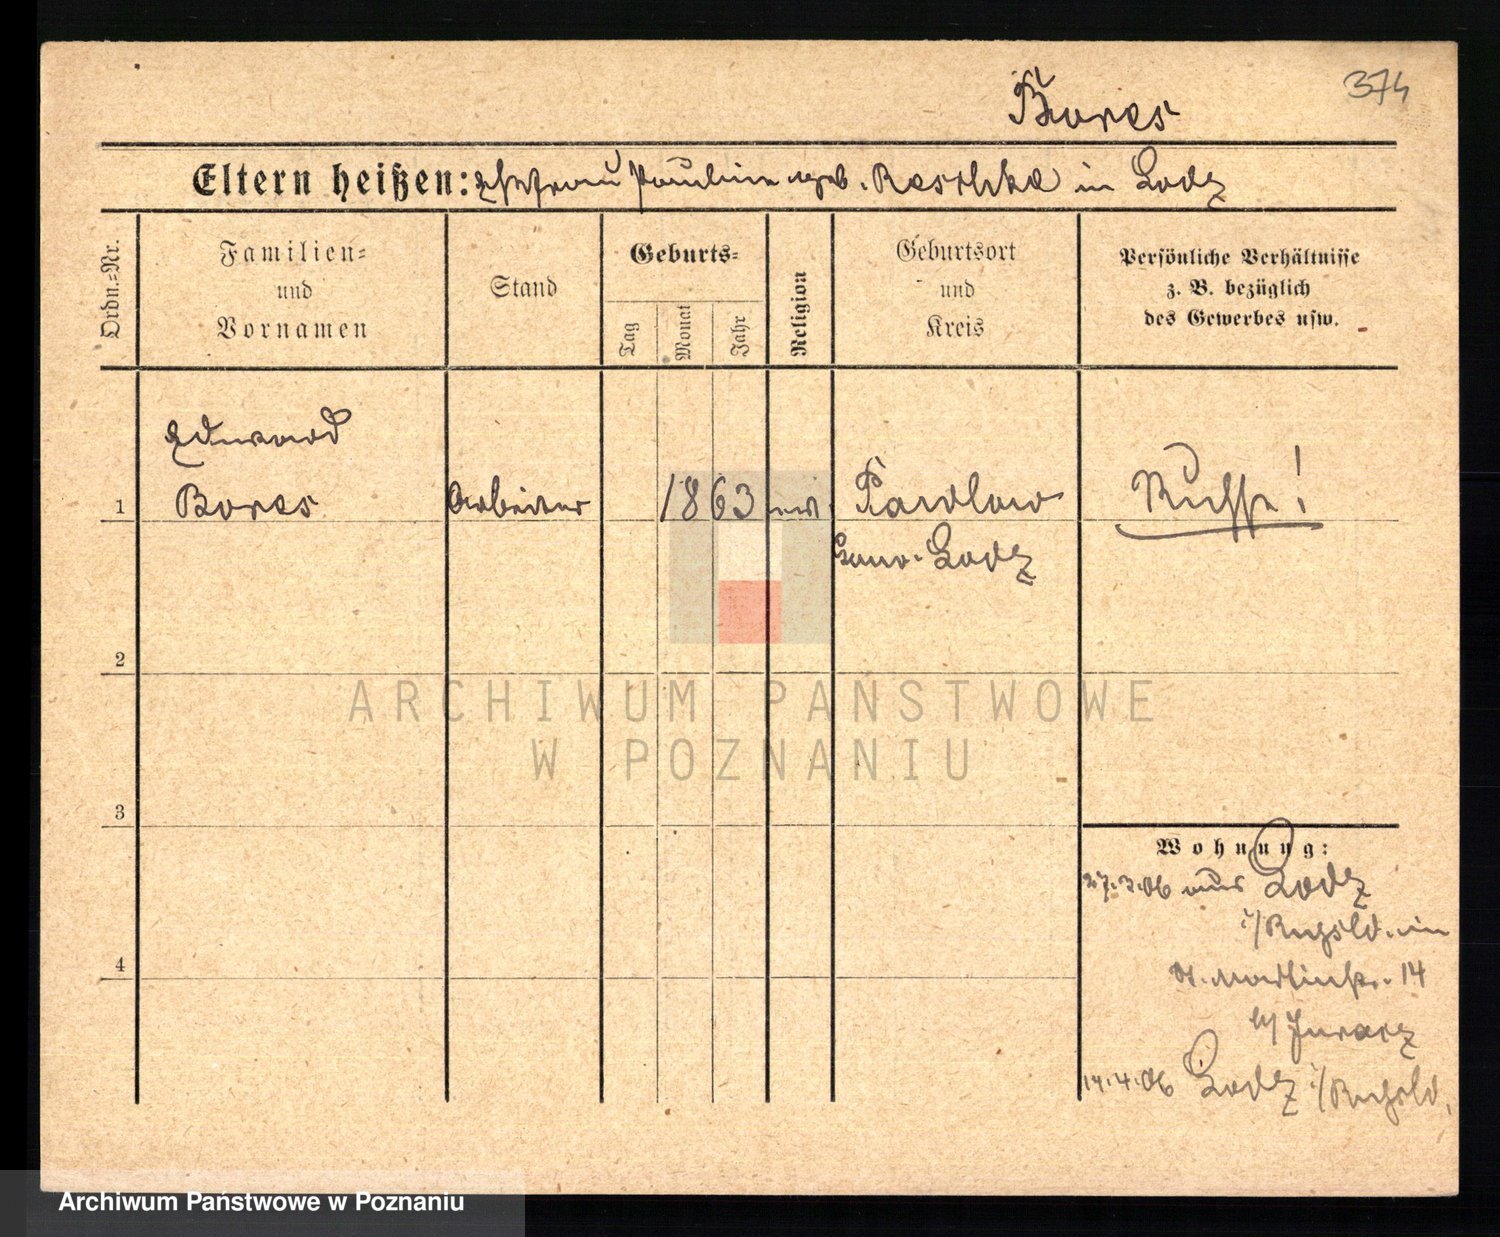 374
Bores
Eltern heißen: Ehefrau Pauline geb. Reschke in Lodz
Ordn.-Nr.
Familien-
und
Vornamen
Stand
Geburts-
Tag
Monat
Jahr
Religion
Geburtsort
und
Kreis
Persönliche Verhältnisse
z. B. bezüglich
des Gewerbes usw.
Eduard
1 Bores Arbeiter 1863 Pawlow Russe!
Gouv. Lodz
2
3
4
Wohnung:
27.3.06 aus Lodz
i/Rußld. in
St. Martinstr. 14
b/
14.4.06 Lodz i/Rußld.
ARCHIWUM PAŃSTWOWE
W POZNANIU
Archiwum Państwowe w Poznaniu